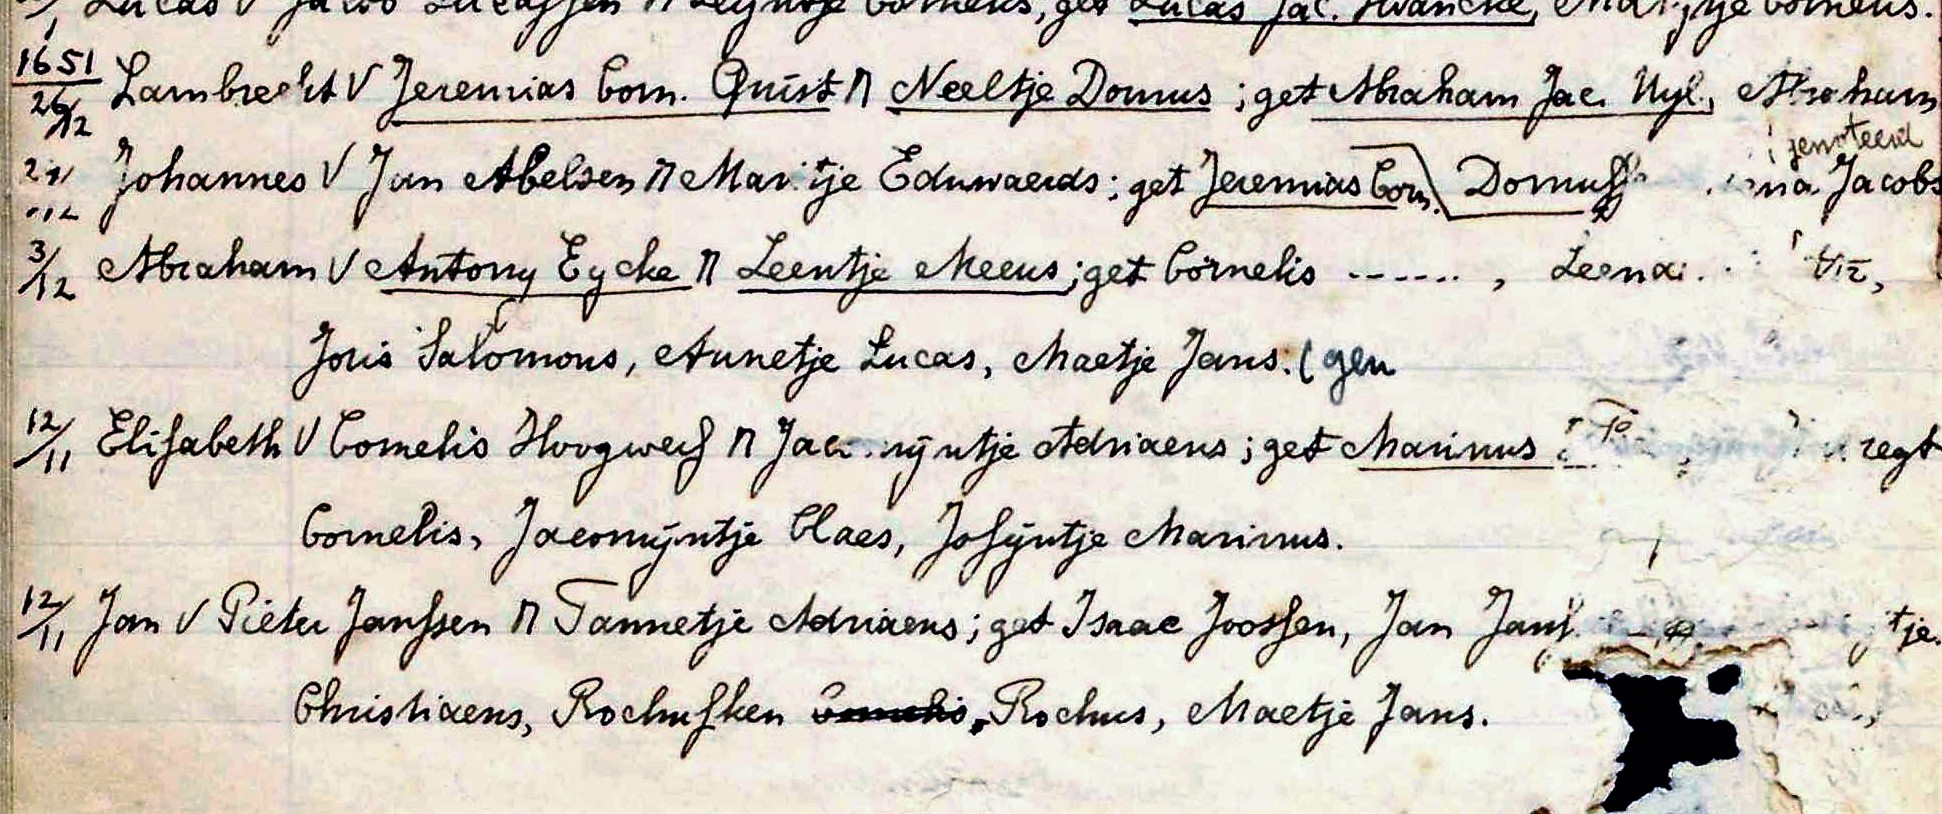 Lucas V Jacob Lucassen Π Leyntje Cornelis, get Lucas Jac. Cornelis.
1651
26/12 Lambrecht V Jeremias Corn. Quist Π Neeltje Domus ; get Abraham Jac. Uyl, Abraham
genoteerd
Johannes V Jan Abelsen Π Eduwaerds ; get Jeremias Corn. Jacobs
3/12 Abraham V Antony Eycke Π Leentje Meeus ; get Cornelis ------ ,
Joris Salomons, Annetje Lucas, Maetje Jans. ( gen
12/11 Elisabeth V Cornelis Hoogwerf Π Adriaens ; get Marinus regt
Cornelis, Jacomÿntje Claes, Josÿntje Marinus.
12/11 Jan V Pieter Janssen Π Tannetje Adriaens ; get Isaac Joossen, Jan tje.
Christiaens, Rochusken Cornelis, Rochus, Maetje Jans.